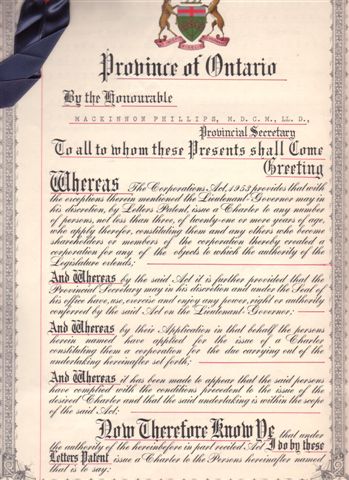 Province of Ontario
By the Honourable
MACKINNON PHILLIPS, M.D.C.M., LL.D.,
Provincial Secretary
To all to whom these Presents shall Come
Greeting
Whereas The Corporations Act, 1953 provides that with
the exceptions therein mentioned the Lieutenant-Governor may in
his discretion, by Letters Patent, issue a Charter to any number
of persons, not less than three, of twenty-one or more years of age,
who apply therefor, constituting them and any others who become
shareholders or members of the corporation thereby created a
corporation for any of the objects to which the authority of the
Legislature extends;
And Whereas by the said Act it is further provided that the
Provincial Secretary may in his discretion and under the Seal of
his office have, use, exercise and enjoy any power, right or authority
conferred by the said Act on the Lieutenant-Governor;
And Whereas by their Application in that behalf the persons
herein named have applied for the issue of a Charter
constituting them a corporation for the due carrying out of the
undertaking hereinafter set forth;
And Whereas it has been made to appear that the said persons
have complied with the conditions precedent to the issue of the
desired Charter and that the said undertaking is within the scope
of the said Act;
Now Therefore Know Ye that under
the authority of the hereinbefore in part recited Act I do by these
Letters Patent issue a Charter to the Persons hereinafter named
that is to say: